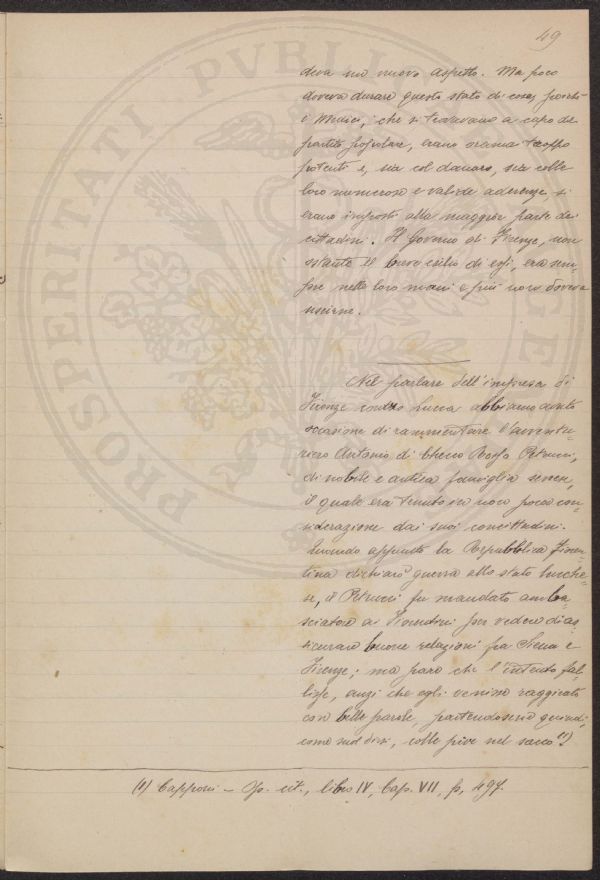 49
deva un nuovo aspetto. Ma poco
doveva durare questo stato di cose, poichè
i Medici, che si trovavano a capo del
partito popolare, erano oramai troppo
potenti e, sia col danaro, sia colle
loro numerose e valide aderenze, si
erano imposti alla maggior parte dei
cittadini. Il Governo di Firenze, non
ostante il breve esilio di essi, era sem-
pre nelle loro mani e più non doveva
uscirne.
Nel parlare dell'impresa di
Firenze contro Lucca abbiamo avuto
occasione di rammentare l'avventu-
riero Antonio di Checco Rosso Petrucci,
di nobile e antica famiglia senese,
il quale era tenuto in non poca con-
siderazione dai suoi concittadini.
Quando appunto la Repubblica Fioren-
tina dichiarò guerra allo stato lucche-
se, il Petrucci fu mandato amba-
sciatore ai Fiorentini per vedere di as-
sicurare buone relazioni fra Siena e
Firenze; ma pare che l'intento fal-
lisse, anzi che egli venisse raggirato
con belle parole, partendosene quindi,
come suol dirsi, colle pive nel sacco (1)
(1) Capponi - Op. cit., libro IV, Cap. VII, p. 497.
PROSPERITATI PVBLICAE